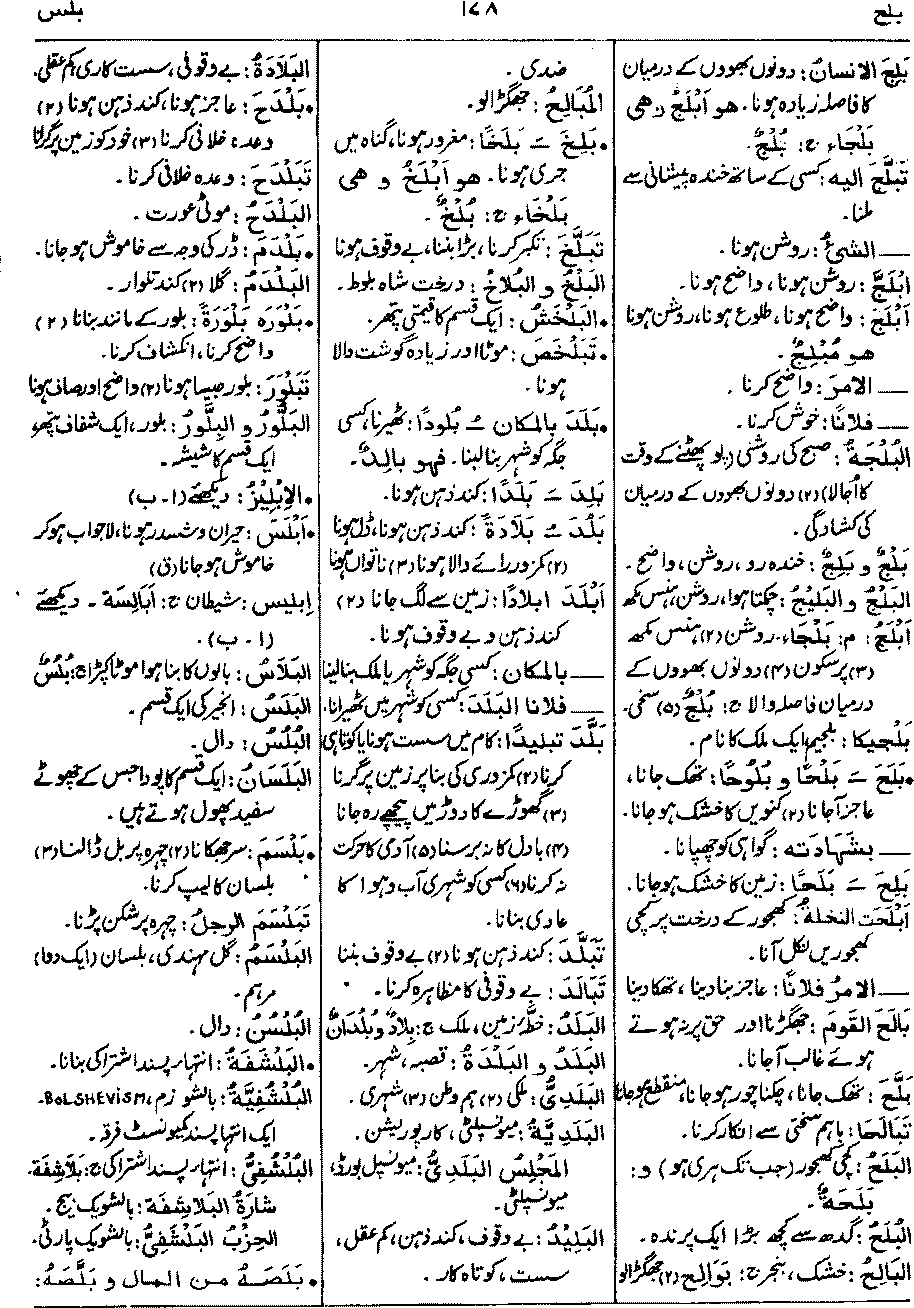 بلج
١٤٨
بلس
بَلِجَ الانسانُ: دونوں بھووں کے درمیان
کا فاصلہ زیادہ ہونا۔ هو أَبْلَجُ وهي
بَلْجَاء ج: بُلْجٌ۔
تَبَلَّجَ اليه: کسی کے ساتھ خندہ پیشانی سے
ملنا۔
— الشئُ: روشن ہونا۔
اِبْلَجَّ: روشن ہونا، واضح ہونا۔
اَبْلَجَ: واضح ہونا، طلوع ہونا، روشن ہونا
هو مُبْلِجٌ۔
— الامرَ: واضح کرنا۔
— فلانًا: خوش کرنا۔
البُلْجَةُ: صبح کی روشنی (پو پھٹنے کے وقت
کا اُجالا) (۲) دونوں بھووں کے درمیان
کی کشادگی۔
بَلْجٌ و بَلِجٌ: خندہ رو، روشن، واضح۔
البَلْجُ و البَلِيْجُ: چمکتا ہوا، روشن، ہنس مکھ
اَبْلَجُ: م: بَلْجَاء۔ روشن (۲) ہنس مکھ
(۳) پرسکون (۴) دونوں بھووں کے
درمیان فاصلہ والا ج: بُلْجٌ (۵) سخی۔
بَلْجِيْكَا: بلجیم ایک ملک کا نام۔
•بَلَحَ ــَ بَلْحًا و بُلُوحًا: تھک جانا،
عاجز آجانا (۲) کنویں کا خشک ہوجانا۔
— بشهادته: گواہی کو چھپانا۔
بَلِحَ ــَ بَلَحًا: زمین کا خشک ہوجانا۔
اَبْلَحَت النخلةُ: کھجور کے درخت پر کچی
کھجوریں نکل آنا۔
— الامرُ فلانًا: عاجز بنا دینا، تھکا دینا
بَالَحَ القومَ: جھگڑنا اور حق پر نہ ہوتے
ہوئے غالب آجانا۔
بَلَّحَ: تھک جانا، چکنا چور ہوجانا، منقطع ہوجانا
تَبَالَحَا: باہم سختی سے انکار کرنا۔
البَلَحُ: کچی کھجور (جب تک ہری ہو) و:
بَلَحَةٌ۔
البُلَحُ: گدھ سے کچھ بڑا ایک پرندہ۔
البَالِحُ: خشک، بنجر ج: بَوَالِح (۲) جھگڑالو
ضدی۔
المُبَالِحُ: جھگڑالو۔
•بَلِخَ ــَ بَلَخًا: مغرور ہونا، گناہ میں
جری ہونا۔ هو أَبْلَخُ و هي
بَلْخَاء ج: بُلْخٌ۔
تَبَلَّخَ: تکبر کرنا، بڑا بننا، بے وقوف ہونا
البَلْخُ و البُلَاخُ: درخت شاہ بلوط۔
•البَلَخْشُ: ایک قسم کا قیمتی پتھر۔
•تَبَلْخَصَ: موٹا اور زیادہ گوشت والا
ہونا۔
•بَلَدَ بالمكان ــُ بُلُودًا: ٹھیرنا، کسی
جگہ کو شہر بنا لینا۔ فهو بالِدٌ۔
بَلِدَ ــَ بَلَدًا: کند ذہن ہونا۔
بَلُدَ ــُ بَلَادَةً: کند ذہن ہونا، ڈل ہونا
(۲) کمزور رائے والا ہونا (۳) ناتواں ہونا
اَبْلَدَ ابلادًا: زمین سے لگ جانا (۲)
کند ذہن و بے وقوف ہونا۔
— بالمكان: کسی جگہ کو شہر یا ملک بنا لینا
— فلانا البلدَ: کسی کو شہر میں ٹھیرانا۔
بَلَّدَ تبليدًا: کام میں سست ہونا یا کوتاہی
کرنا (۲) کمزوری کی بنا پر زمین پر گرنا
(۳) گھوڑے کا دوڑ میں پیچھے رہ جانا
(۴) بادل کا نہ برسنا (۵) آدمی کا حرکت
نہ کرنا (۶) کسی کو شہری آب و ہوا کا
عادی بنانا۔
تَبَلَّدَ: کند ذہن ہونا (۲) بے وقوف بننا
تَبَالَدَ: بے وقوفی کا مظاہرہ کرنا۔
البَلَدُ: خطۂ زمین، ملک ج: بِلَادٌ وبُلْدَانٌ
البَلَدُ و البَلْدَةُ: قصبہ، شہر۔
البَلَدِيُّ: ملکی (۲) ہم وطن (۳) شہری۔
البَلَدِيَّةُ: میونسپلٹی، کارپوریشن۔
المَجْلِسُ البَلَدِيُّ: میونسپل بورڈ،
میونسپلٹی۔
البَلِيْدُ: بے وقوف، کند ذہن، کم عقل،
سست، کوتاہ کار۔
البَلَادَةُ: بے وقوفی، سست کاری، کم عقلی۔
•بَلْدَحَ: عاجز ہونا، کند ذہن ہونا (۲)
وعدہ خلافی کرنا (۳) خود کو زمین پر گرانا
تَبَلْدَحَ: وعدہ خلافی کرنا۔
البَلْدَحُ: موٹی عورت۔
•بَلْدَمَ: ڈر کی وجہ سے خاموش ہوجانا۔
البَلْدَمُ: گلا (۲) کند تلوار۔
•بَلْوَرَه بَلْوَرَةً: بلور کے مانند بنانا (۲)
واضح کرنا، انکشاف کرنا۔
تَبَلْوَرَ: بلور جیسا ہونا (۲) واضح اور صاف ہونا
البَلُّوْرُ و البِلَّوْرُ: بلور، ایک شفاف پتھر،
ایک قسم کا شیشہ۔
•الاِبْلِيْزُ: دیکھئے (ا۔ب)
•اَبْلَسَ: حیران و ششدر ہونا، لاجواب ہوکر
خاموش ہوجانا (ق)
اِبليس: شیطان ج: اَبَالِسة۔ دیکھئے
(ا۔ب)۔
البَلَاسُ: بالوں کا بنا ہوا موٹا کپڑا ج: بُلُسٌ
البَلَسُ: انجیر کی ایک قسم۔
البُلُسُ: دال۔
البَلَسَانُ: ایک قسم کا پودا جس کے چھوٹے
سفید پھول ہوتے ہیں۔
•بَلْسَمَ: سر جھکانا (۲) چہرہ پر بل ڈالنا (۳)
بلسان کا لیپ کرنا۔
تَبَلْسَمَ الرجلُ: چہرہ پر شکن پڑنا۔
البَلْسَمُ: گل مہندی، بلسان (ایک دوا)
مرہم۔
البُلْسُنُ: دال۔
•البَلْشَفَةُ: انتہا پسند اشتراکی بنانا۔
البُلْشُفِيَّةُ: بالشوزم، BOLSHEVISM،
ایک انتہا پسند کمیونسٹ فرقہ۔
البُلْشُفِيُّ: انتہا پسند اشتراکی ج: بَلَاشِفَة۔
شارَةُ البَلَاشِفَة: بالشویک بیج۔
الحِزْبُ البُلْشَفِيُّ: بالشویک پارٹی۔
•بَلَصَهُ من المال و بَلَّصَهُ: